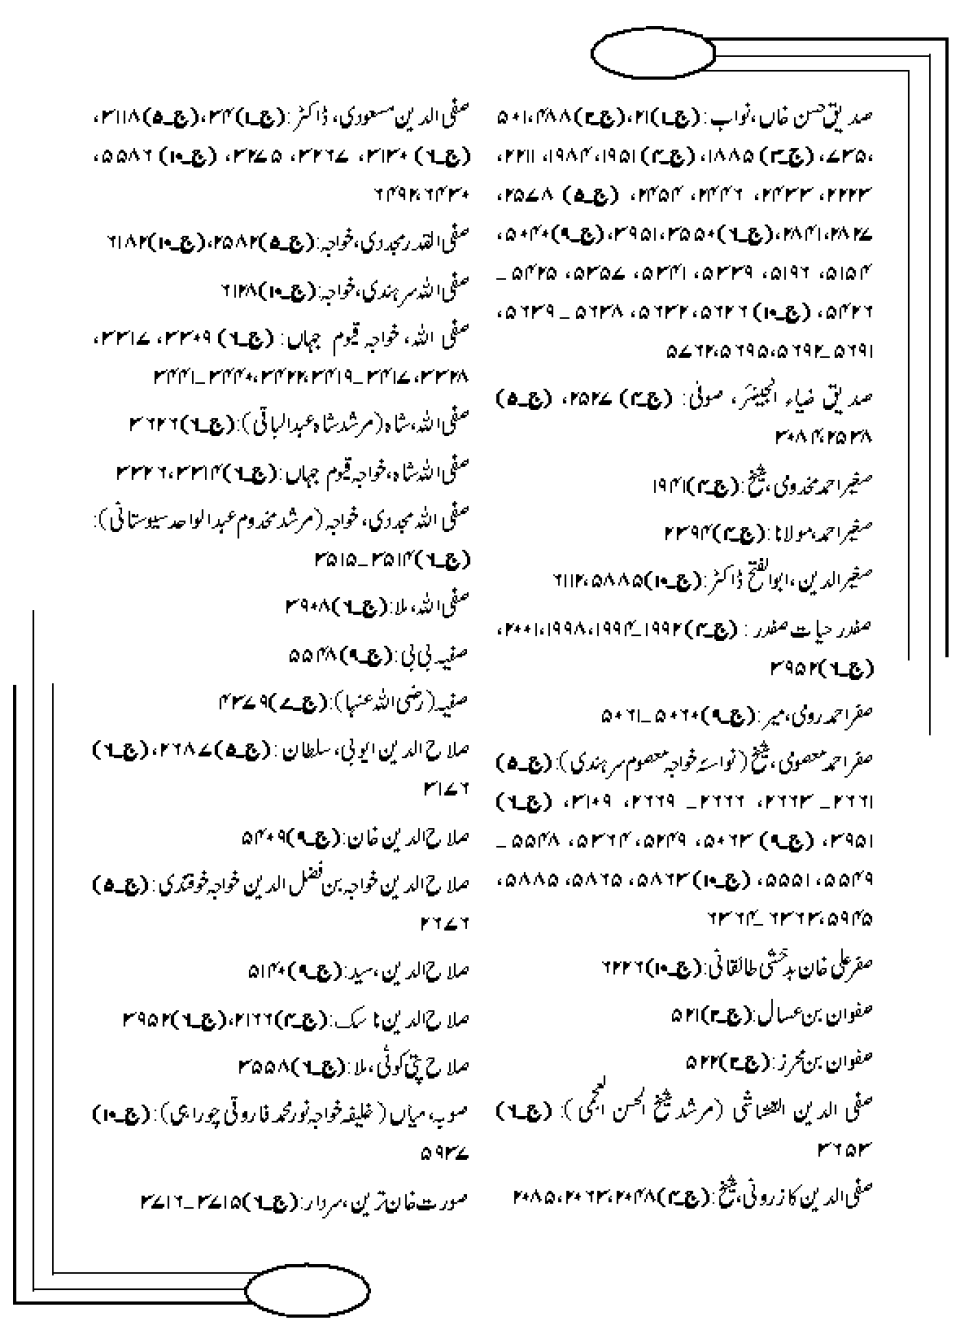 صدیق حسن خاں، نواب: (ج۔۱)۲۱، (ج۔۲)۴۸۸، ۵۰۱
،۷۳۵، (ج۔۳)۱۸۸۵، (ج۔۴)۱۹۵۱، ۱۹۸۴، ۲۲۱۱،
۲۲۲۳، ۲۴۳۳، ۲۴۴۶، ۲۴۵۴، (ج۔۵) ۲۵۷۸،
۲۸۲۷، ۲۸۴۱، (ج۔۶)۳۵۵۰، ۳۹۵۱، (ج۔۹)۵۰۴۰،
۵۱۵۴، ۵۱۹۶، ۵۳۳۹، ۵۳۴۱، ۵۳۵۷، ۵۴۲۵ ۔
۵۴۲۶، (ج۔۱۰) ۵۶۲۶، ۵۶۳۲، ۵۶۳۸ ۔ ۵۶۳۹،
۵۶۹۱۔۵۶۹۲، ۵۶۹۵، ۵۷۶۲
صدیق ضیاء انجینئر، صوفی: (ج۔۴) ۲۵۲۷، (ج۔۵)
۲۵۳۸، ۳۰۸۴
صغیر احمد مخدومی، شیخ: (ج۔۴)۱۹۴۱
صغیر احمد، مولانا: (ج۔۴)۲۳۹۴
صغیر الدین، ابوالفتح ڈاکٹر: (ج۔۱۰)۵۸۸۵، ۶۱۱۲
صفدر حیات صفدر: (ج۔۴)۱۹۹۲۔۱۹۹۴، ۱۹۹۸، ۲۰۰۱،
(ج۔۶)۳۹۵۲
صفر احمد رومی، میر: (ج۔۹)۵۰۶۰۔۵۰۶۱
صفر احمد معصومی، شیخ (نواسۂ خواجہ معصوم سرہندی): (ج۔۵)
۲۶۶۱ ۔ ۲۶۶۳، ۲۶۶۶ ۔ ۲۶۶۹، ۳۱۰۹، (ج۔۶)
۳۹۵۱، (ج۔۹) ۵۰۶۳، ۵۲۴۹، ۵۳۶۴، ۵۵۴۸ ۔
۵۵۴۹، ۵۵۵۱، (ج۔۱۰)۵۸۶۳، ۵۸۶۵، ۵۸۸۵،
۵۹۴۵، ۶۳۶۳۔ ۶۳۶۴
صفر علی خان بدخشی طالقانی: (ج۔۱۰)۶۲۲۶
صفوان بن عسال: (ج۔۲)۵۲۱
صفوان بن محرز: (ج۔۲)۵۲۲
صفی الدین القشاشی (مرشد شیخ الحسن العجمی): (ج۔۶)
۳۶۵۳
صفی الدین کازرونی، شیخ: (ج۔۴)۲۰۴۸، ۲۰۶۳، ۲۰۸۵
صفی الدین مسعودی، ڈاکٹر: (ج۔۱)۳۴، (ج۔۵)۳۱۱۸،
(ج۔۶) ۳۱۳۰، ۳۲۶۷، ۳۲۷۵، (ج۔۱۰) ۵۵۸۶،
۶۴۳۰، ۶۴۹۲
صفی القدر مجددی، خواجہ: (ج۔۵)۲۵۸۲، (ج۔۱۰)۶۱۸۲
صفی اللہ سرہندی، خواجہ: (ج۔۱۰)۶۱۲۸
صفی اللہ، خواجہ قیوم جہاں: (ج۔۶) ۳۳۰۹، ۳۳۱۷،
۳۳۲۸، ۳۴۱۷۔ ۳۴۱۹، ۳۴۲۲، ۳۴۴۰۔۳۴۴۱
صفی اللہ، شاہ (مرشد شاہ عبدالباقی): (ج۔۶)۳۶۲۶
صفی اللہ شاہ، خواجہ قیوم جہاں: (ج۔۶)۳۳۱۴، ۳۳۲۶
صفی اللہ مجددی، خواجہ (مرشد مخدوم عبدالواحد سیوستانی):
(ج۔۶)۳۵۱۴۔۳۵۱۵
صفی اللہ، ملا: (ج۔۶)۳۹۰۸
صفیہ بی بی: (ج۔۹)۵۵۴۸
صفیہ (رضی اللہ عنہا): (ج۔۷)۴۳۷۹
صلاح الدین ایوبی، سلطان: (ج۔۵)۲۶۸۷، (ج۔۶)
۳۱۷۶
صلاح الدین خان: (ج۔۹)۵۴۰۹
صلاح الدین خواجہ بن فضل الدین خواجہ خوقندی: (ج۔۵)
۲۶۷۶
صلاح الدین، سید: (ج۔۹)۵۱۴۰
صلاح الدین ناسک: (ج۔۴)۲۱۶۶، (ج۔۶)۳۹۵۲
صلاح پٹی کوٹی، ملا: (ج۔۶)۳۵۵۸
صوبہ، میاں (خلیفہ خواجہ نور محمد فاروقی چوراہی): (ج۔۱۰)
۵۹۳۷
صورت خان ترین، سردار: (ج۔۶)۳۷۱۵۔۳۷۱۶